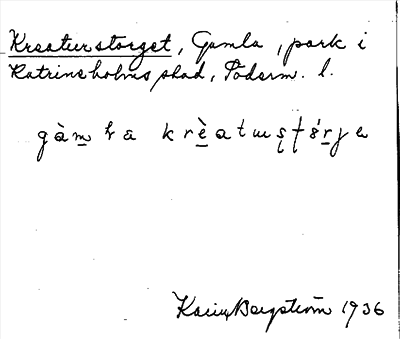 Kreaturstorget, Gamla, park i
Katrineholms stad, Söderm. l.
gàm̲ła krè̲atɯʂʈór̲jə
Karin Bergström 1936